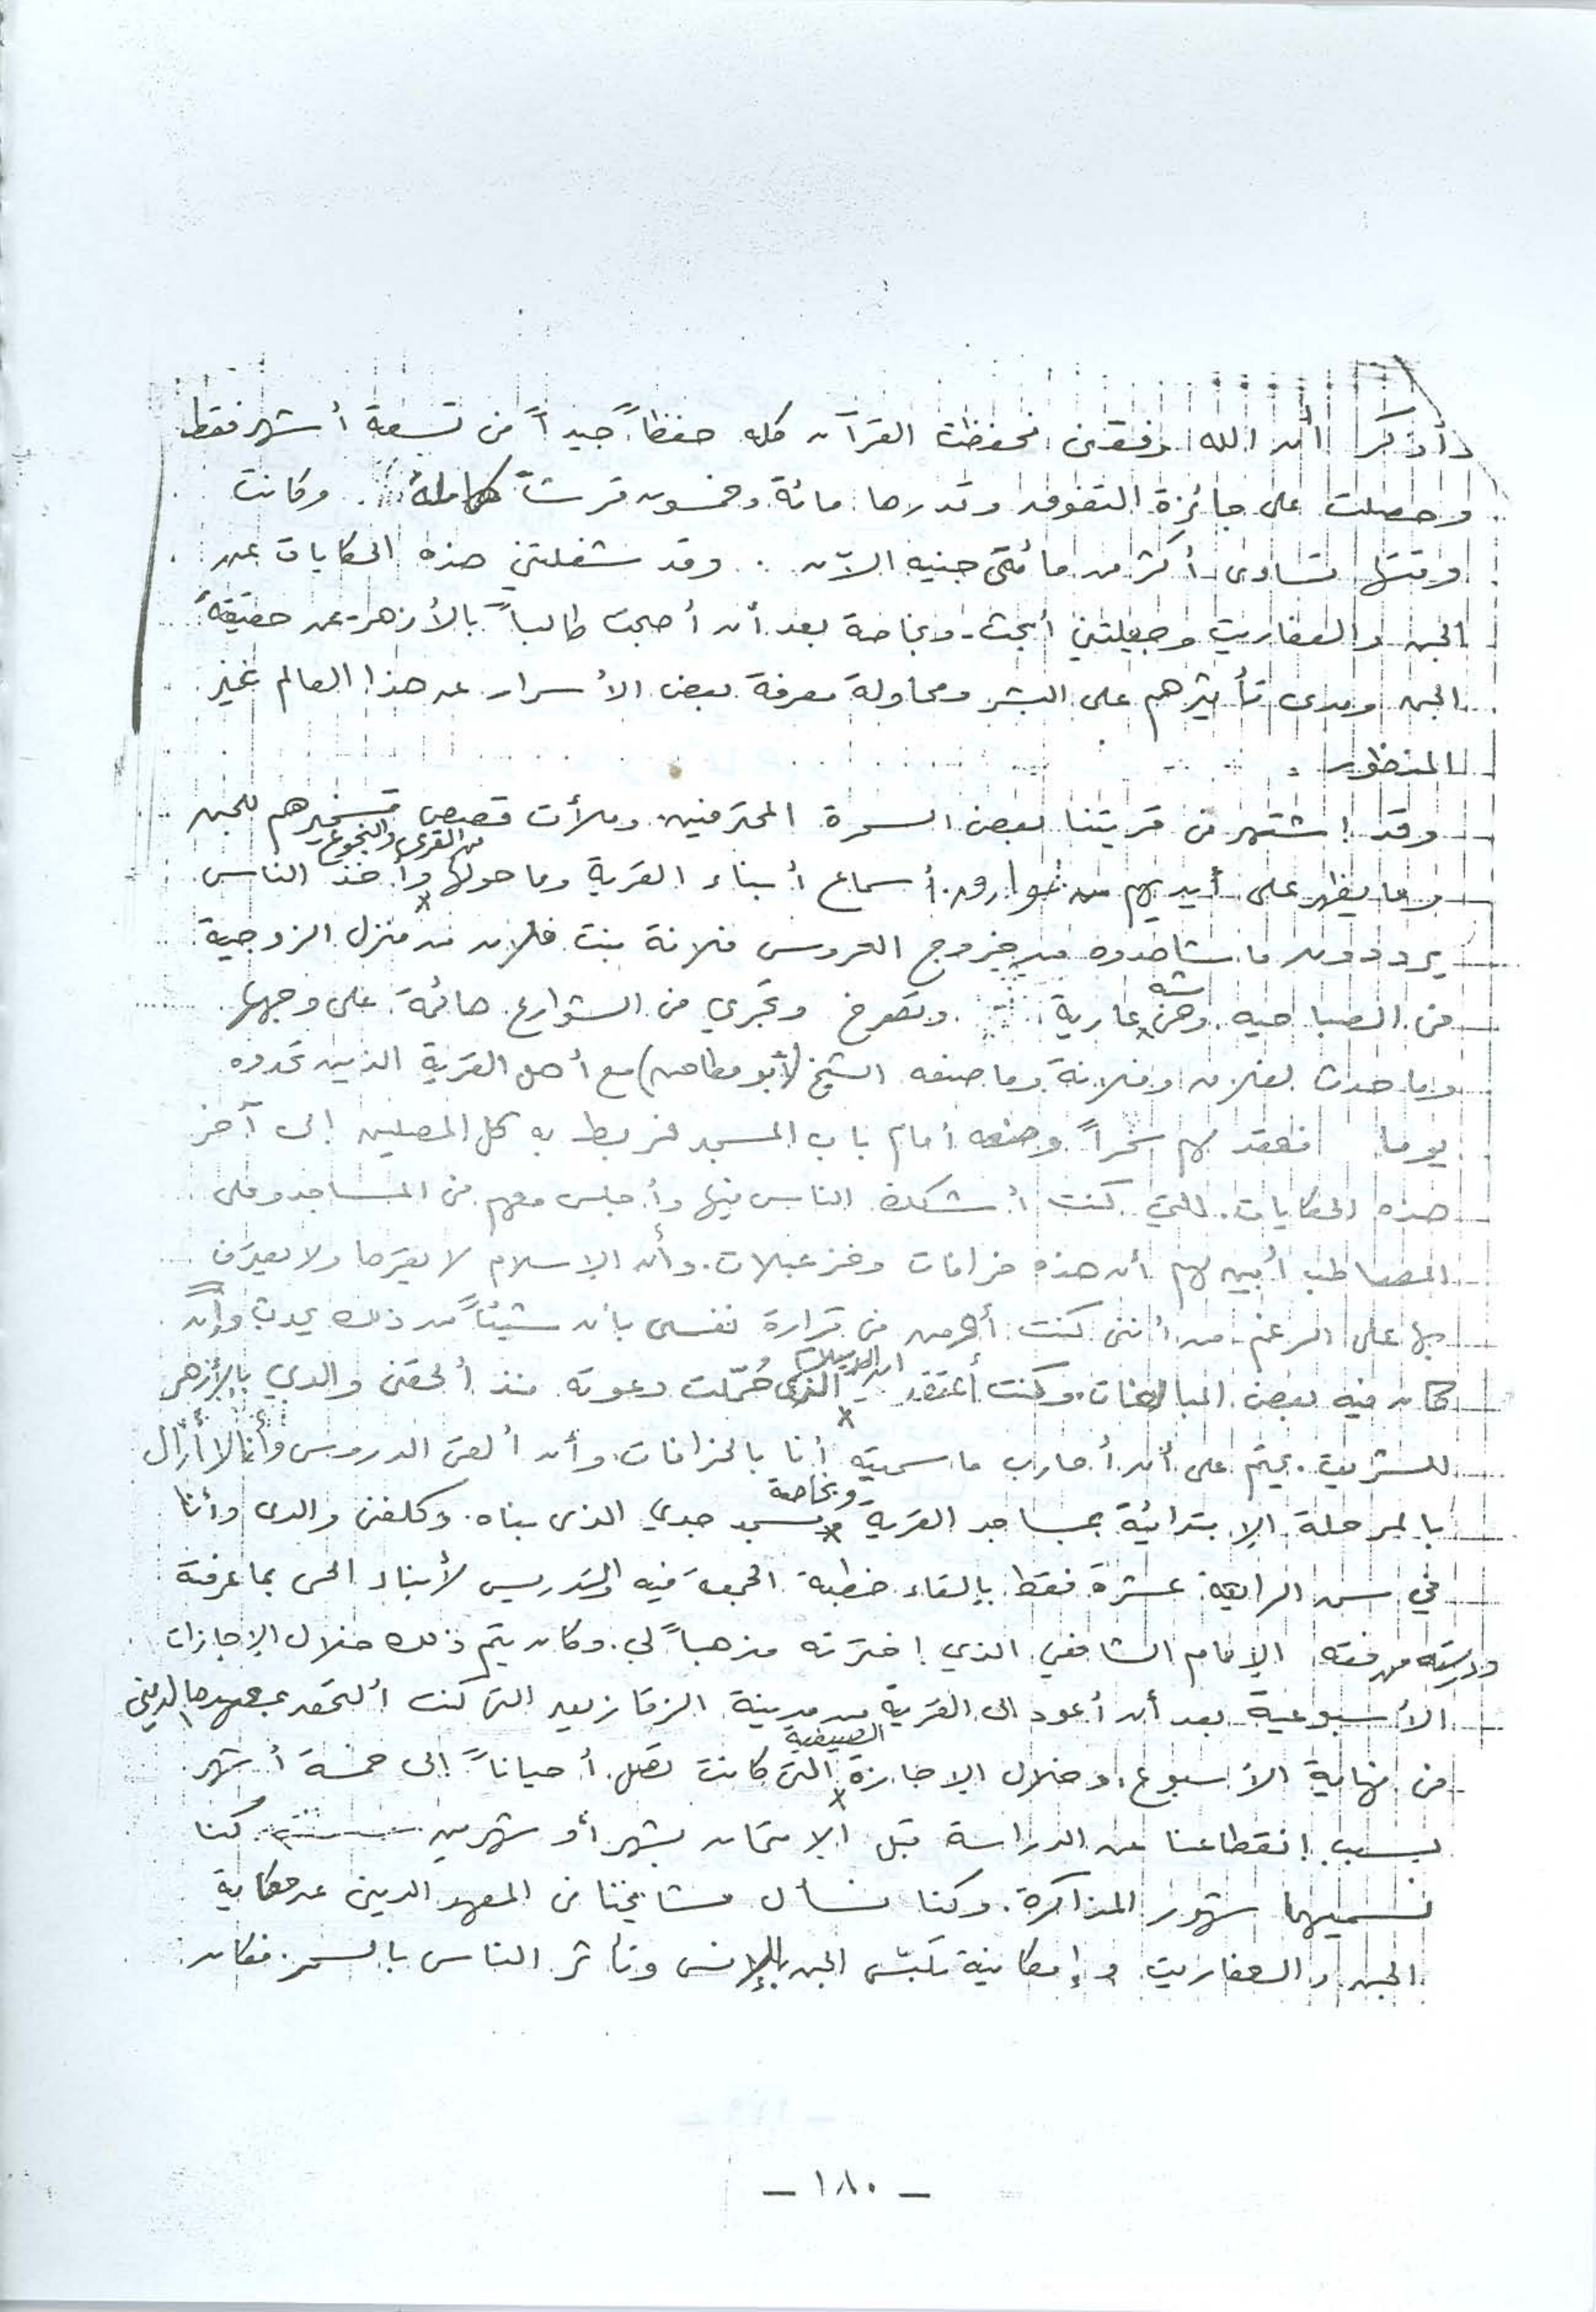 وأذكر أن الله وفقنى فحفظت القرآن كله حفظاً جيداً فى تسعة أشهر فقط
وحصلت على جائزة التفوق وقدرها مائة وخمسون قرشاً كاملة . وكانت
وقتها تساوى أكثر من مائتى جنيه الآن . وقد شغلتني هذه الحكايات عن
الجن والعفاريت وجعلتني أبحث - وبخاصة بعد أن أصبحت طالباً بالأزهر - عن حقيقة
الجن ومدى تأثيرهم على البشر ومحاولة معرفة بعض الأسرار عن هذا العالم غير
المنظور .
وقد اشتهر فى قريتنا بعض السحرة المحترفين وملأت قصص تسخيرهم للجن
وما يظهر على أيديهم من خوارق أسماع أبناء القرية وما حولها من القرى والنجوع وأخذ الناس
يرددون ما شاهدوه من خروج العروس فلانة بنت فلان من منزل الزوجية
فى الصباحيه وهى شبه عارية وتصرخ وتجري فى الشوارع هائمة على وجهها
وما حدث لفلان وفلانة وما صنعه الشيخ (أبو مطاحن) مع أهل القرية الذين تحدوه
يوما فعقد لهم سحراً وضعه أمام باب المسجد فربط به كل المصلين إلى آخر
هذه الحكايات . التي كنت أشكك الناس فيها وأجلس معهم فى المساجد وعلى
المصاطب أبين لهم أن هذه خرافات وخزعبلات . وأن الإسلام لا يقرها ولا يعترف
بها على الرغم من أننى كنت أؤمن فى قرارة نفسى بأن شيئاً من ذلك يحدث وإن
كان فيه بعض المبالغات . وكنت أعتقد أن الإسلام الذى حُمّلت دعوته منذ ألحقنى والدي بالأزهر
الشريف . يحتم على أن أحارب ما سميته أنا بالخرافات وأن ألقى الدروس وأنا لا أزال
بالمرحلة الإبتدائية بمساجد القرية وبخاصة مسجد جدي الذى بناه . وكلفنى والدى وأنا
في سن الرابعة عشرة فقط بإلقاء خطبة الجمعة فيه والتدريس لأبناء الحى بما عرفته
ودرسته من فقه الإمام الشافعي الذي اخترته مذهباً لي . وكان يتم ذلك خلال الإجازات
الأسبوعية بعد أن أعود الى القرية من مدينة الزقازيق التى كنت ألتحق بمعهدها الدينى
فى نهاية الأسبوع . وخلال الإجازة الصيفية التى كانت تصل أحياناً إلى خمسة أشهر
بسبب انقطاعنا عن الدراسة قبل الامتحان بشهر أو شهرين كنا
نسميهما شهور المذاكرة . وكنا نسأل مشايخنا فى المعهد الدينى عن حكاية
الجن والعفاريت وإمكانية تلبّس الجن بالإنس وتأثر الناس بالسحر . فكان
- ١٨٠ -